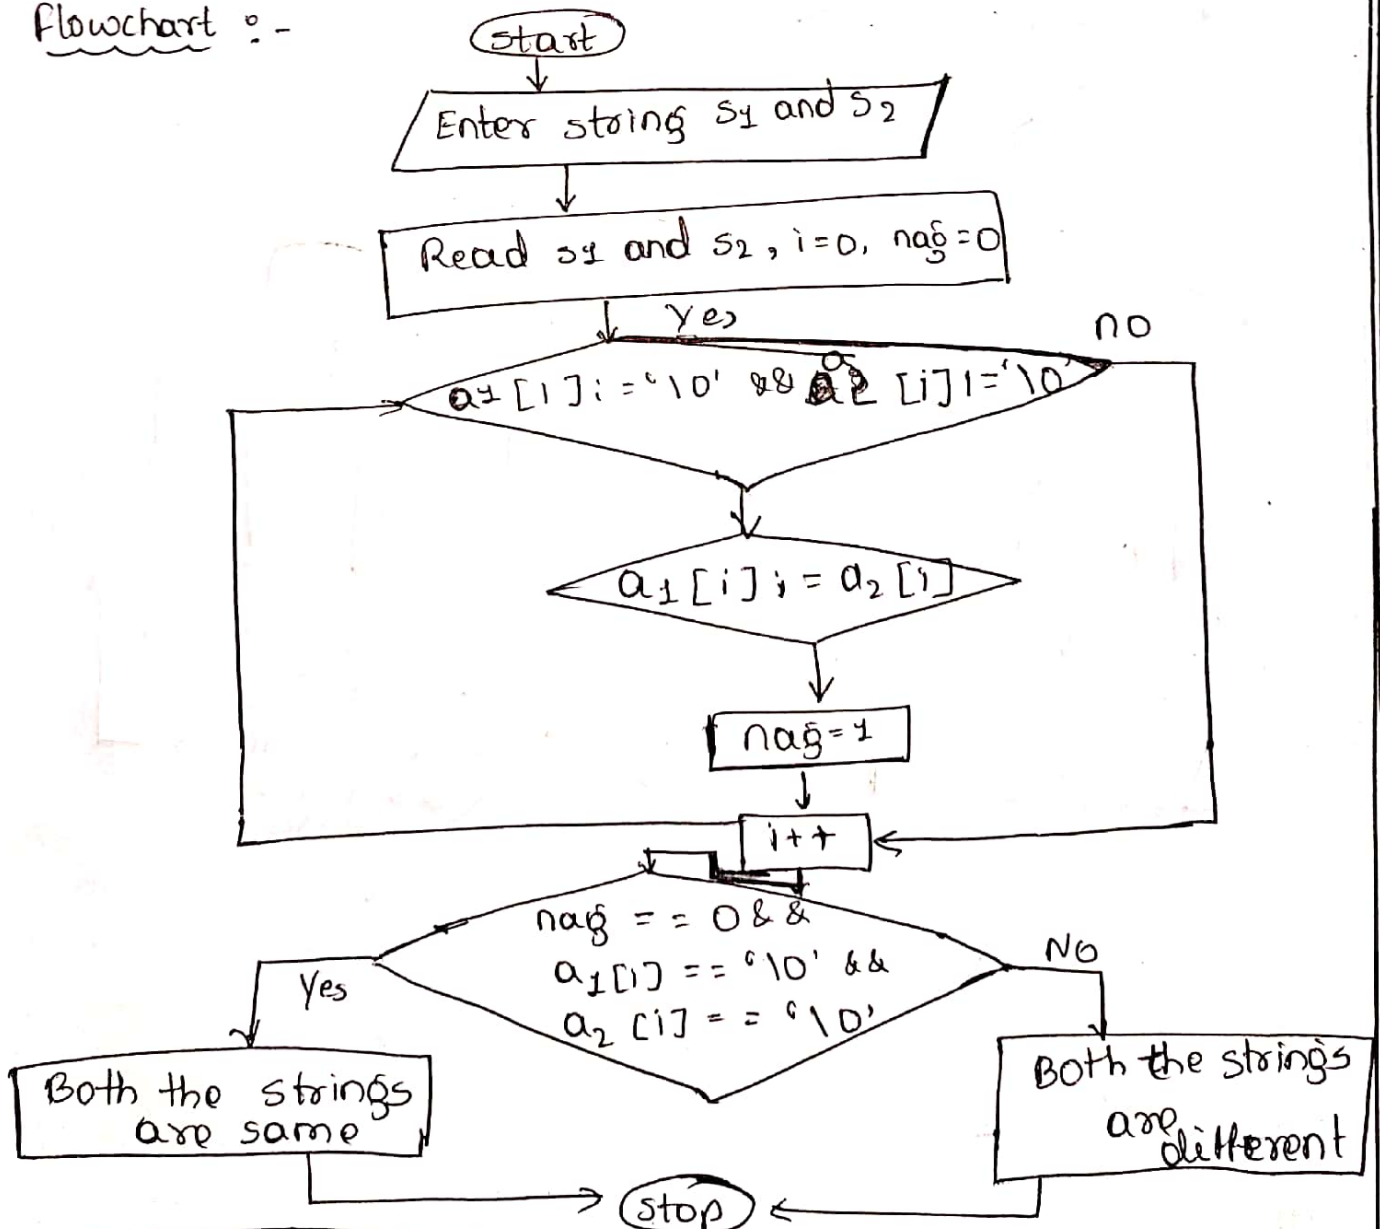 Flowchart :-
start
Enter string s1 and s2
Read s1 and s2, i=0, nag=0
Yes
no
a1[i]i='\0' && a2[i]!='\0'
a1[i]; = a2[i]
nag=1
i++
nag == 0 &&
a1[i] == '\0' &&
a2[i] == '\0'
Yes
NO
Both the strings
are same
Both the strings
are different
stop